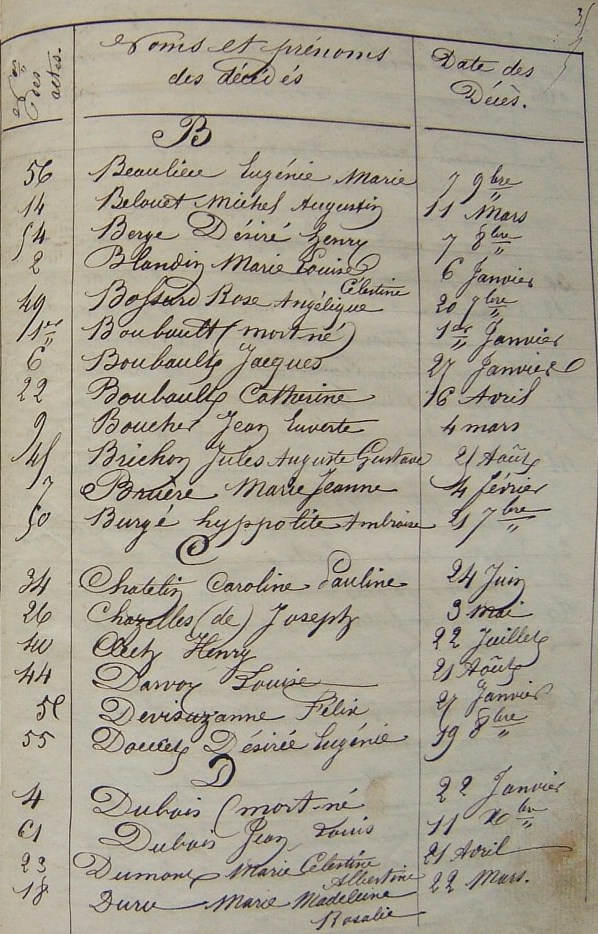 3
Nos des actes.
Noms et prénoms des décédés
Date des Décès.
B
56 Beaulieu Eugénie Marie 7 9bre
14 Belouet Michel Augustin 11 Mars
54 Berge Désiré henry 7 8bre "
2 Blandin Marie Louise 6 Janvier
49 Bossard Rose Angélique Célestine 20 9bre "
1er " Boubault (mort-né) 1er " Janvier
6 Boubault Jacques 27 Janvier
22 Boubault Catherine 16 Avril
9 Boucher Jean Euverte 4 mars
45 Brichon Jules Auguste Gustave 21 Août
7 Bruère Marie Jeanne 4 février
50 Burgé hyppolite Ambroise 21 7bre "
C
34 Chatelin Caroline Pauline 24 Juin
26 Chazelles (de) Joseph 3 mai
40 Henry 22 Juillet
44 Darvoy Louise 21 Août
5 Devisuzanne Félix 27 Janvier
55 Doucet Désirée Eugénie 19 8bre "
D
4 Dubois (mort-né 22 Janvier
61 Dubois Jean Louis 11 Xbre "
23 Dumont Marie Célestine Albertine 21 Avril
18 Duru Marie Madeleine Rosalie 22 Mars.